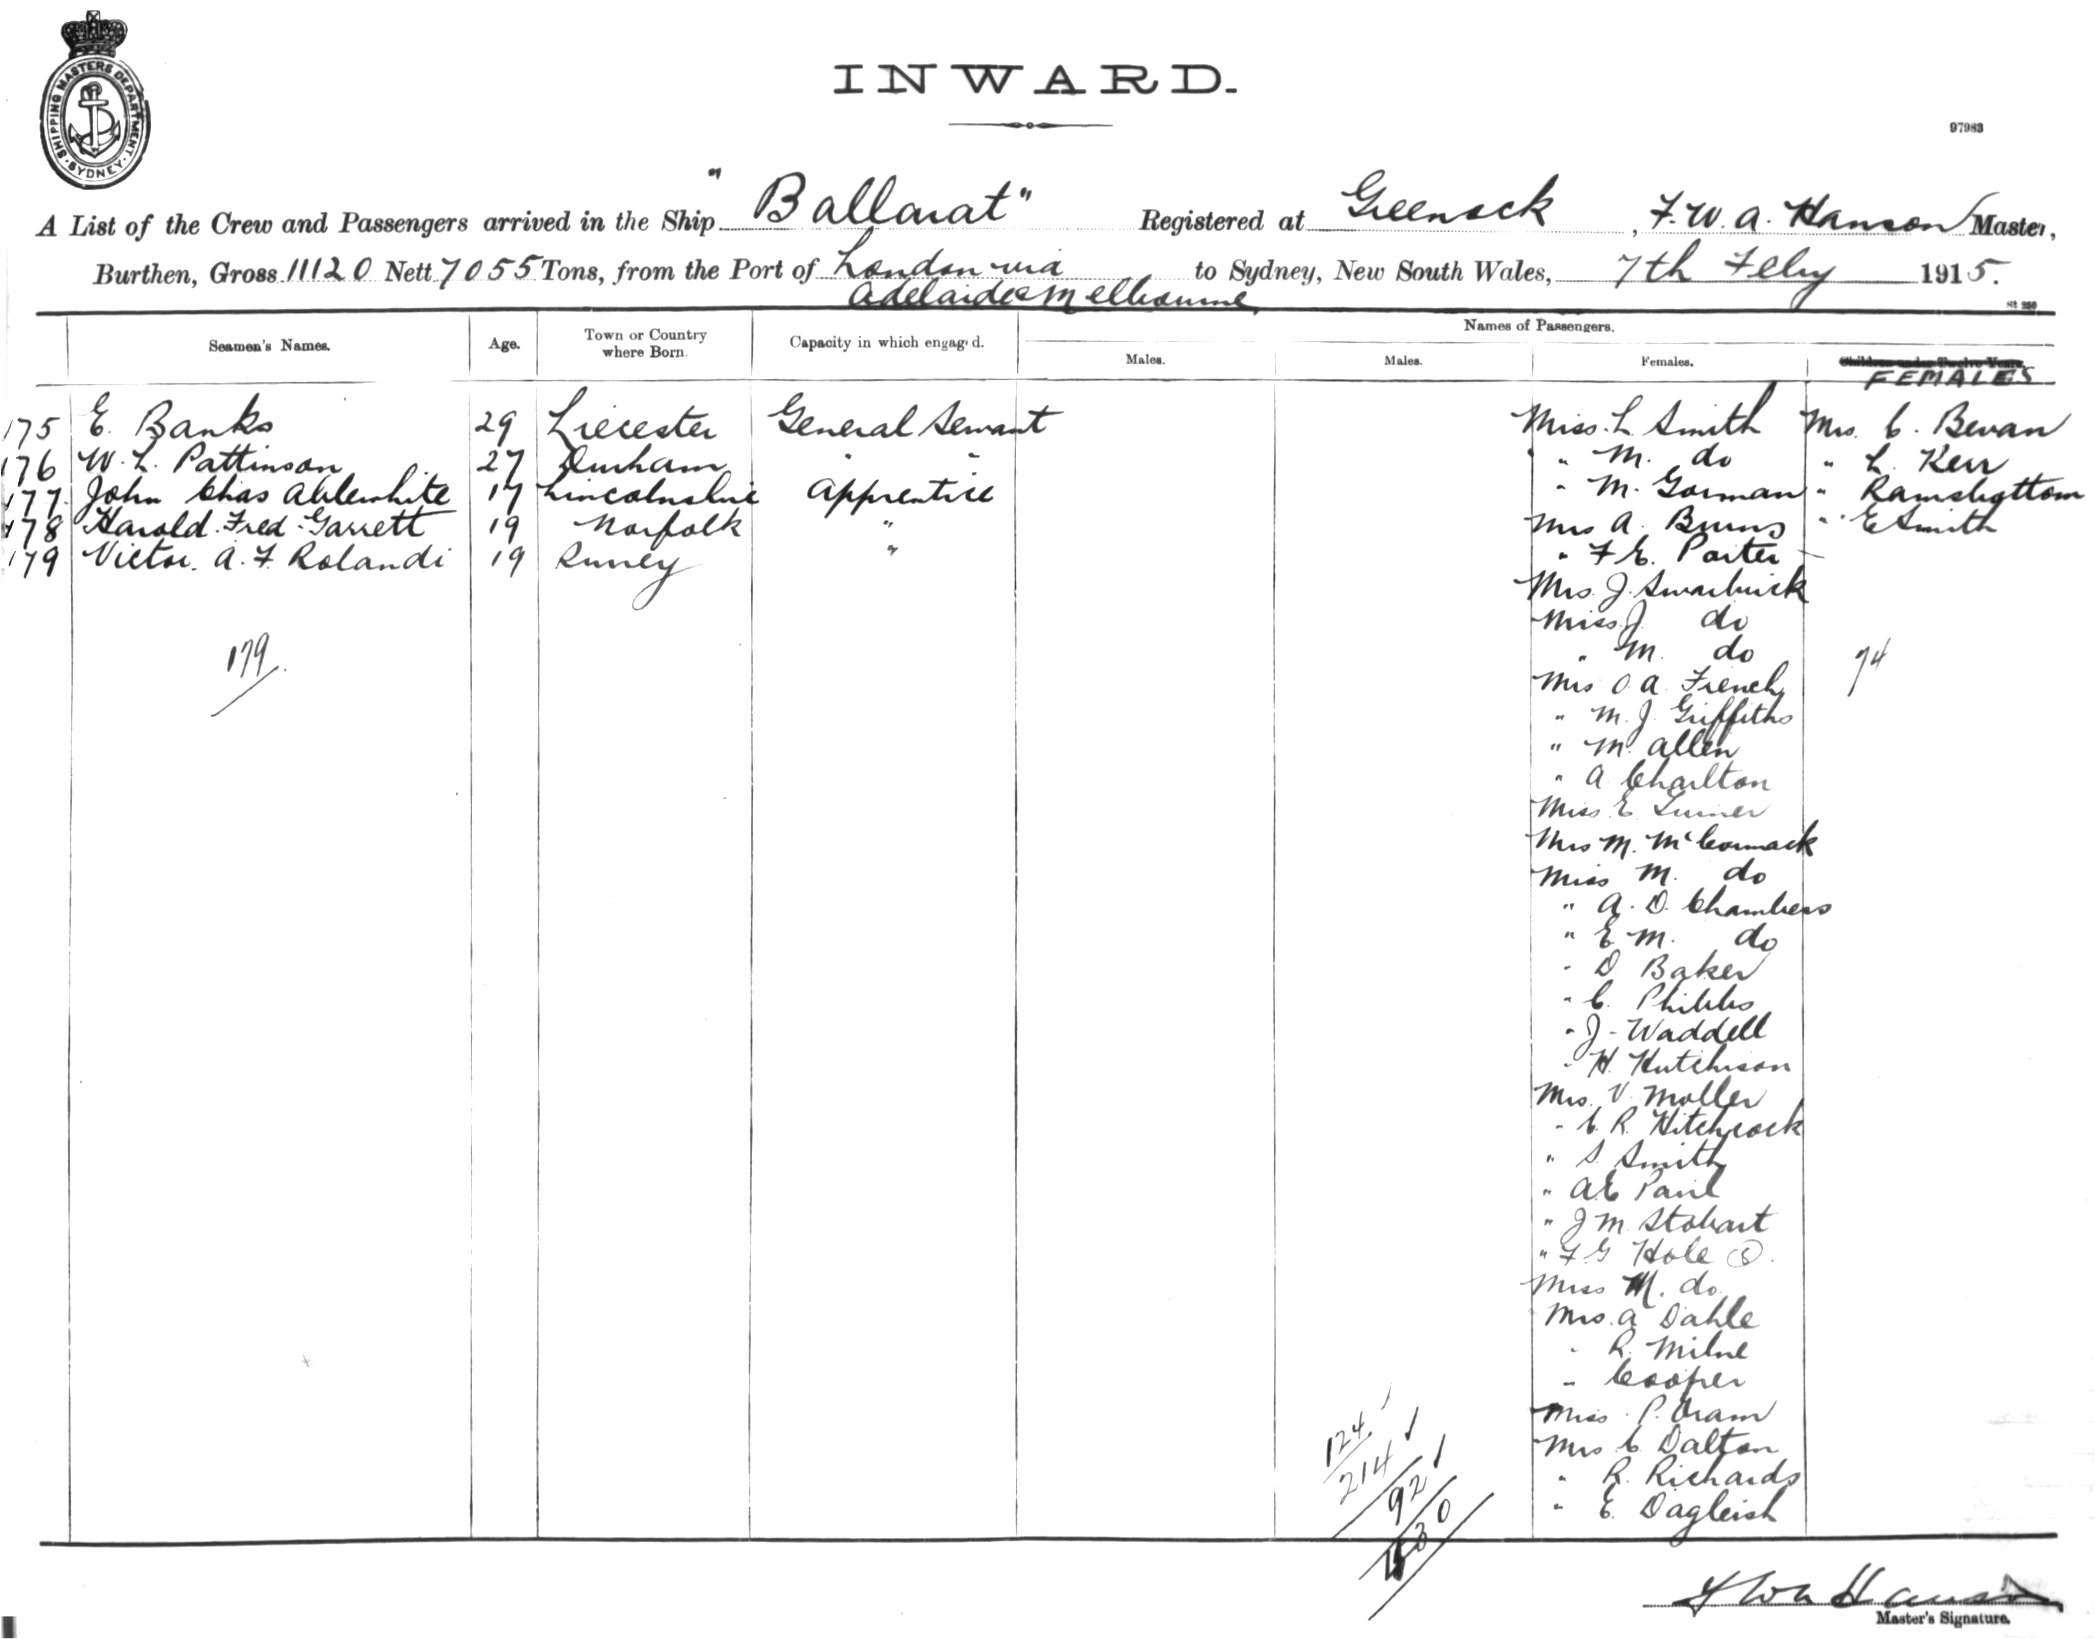 SHIPPING MASTERS DEPARTMENT. SYDNEY
INWARD.
97983
A List of the Crew and Passengers arrived in the Ship "Ballarat" Registered at Greenock, F. W. A. Hanson Master,
Burthen, Gross 11120 Nett 7055 Tons, from the Port of London via to Sydney, New South Wales, 7th Feby 1915.
Adelaide & Melbourne
St 250
Seamen's Names. Age. Town or Country where Born. Capacity in which engaged. Names of Passengers.
Males. Males. Females. Children under Twelve Years.
FEMALES
175 E. Banks 29 Liecester General Servant Miss L Smith Mrs. C. Bevan
176 W. L. Pattinson 27 Durham " " " M. do " L. Kerr
177. John Chas Ablewhite 17 Lincolnshire Apprentice " M. Gorman " Ramsbottom
178 Harold Fred Garrett 19 Norfolk " Mrs A. Burns " E Smith
179 Victor. A. F. Rolandi 19 " " F E. Porter
Mrs. J. Swarbrick
Miss. J. do
179. " M. do 74
Mrs O. A. French
" M. J. Griffiths
" M. Allen
" A Charlton
Miss E. Turner
Mrs M. McCormack
Miss M. do
" A. D. Chambers
" E M. do
" D Baker
" C. Phibbs
" J. Waddell
" H. Hutchison
Mrs. V. Moller
" C. R. Hitchcock
" S. Smith
" A E Paul
" J M Stobart
" F G Hole
Miss M. do.
Mrs. A Dahle
" R. Milne
" Cooper
124 Miss P. Oram
214 Mrs C. Dalton
92 " R. Richards
" E. Dagleish
F W A Hanson
Master's Signature.